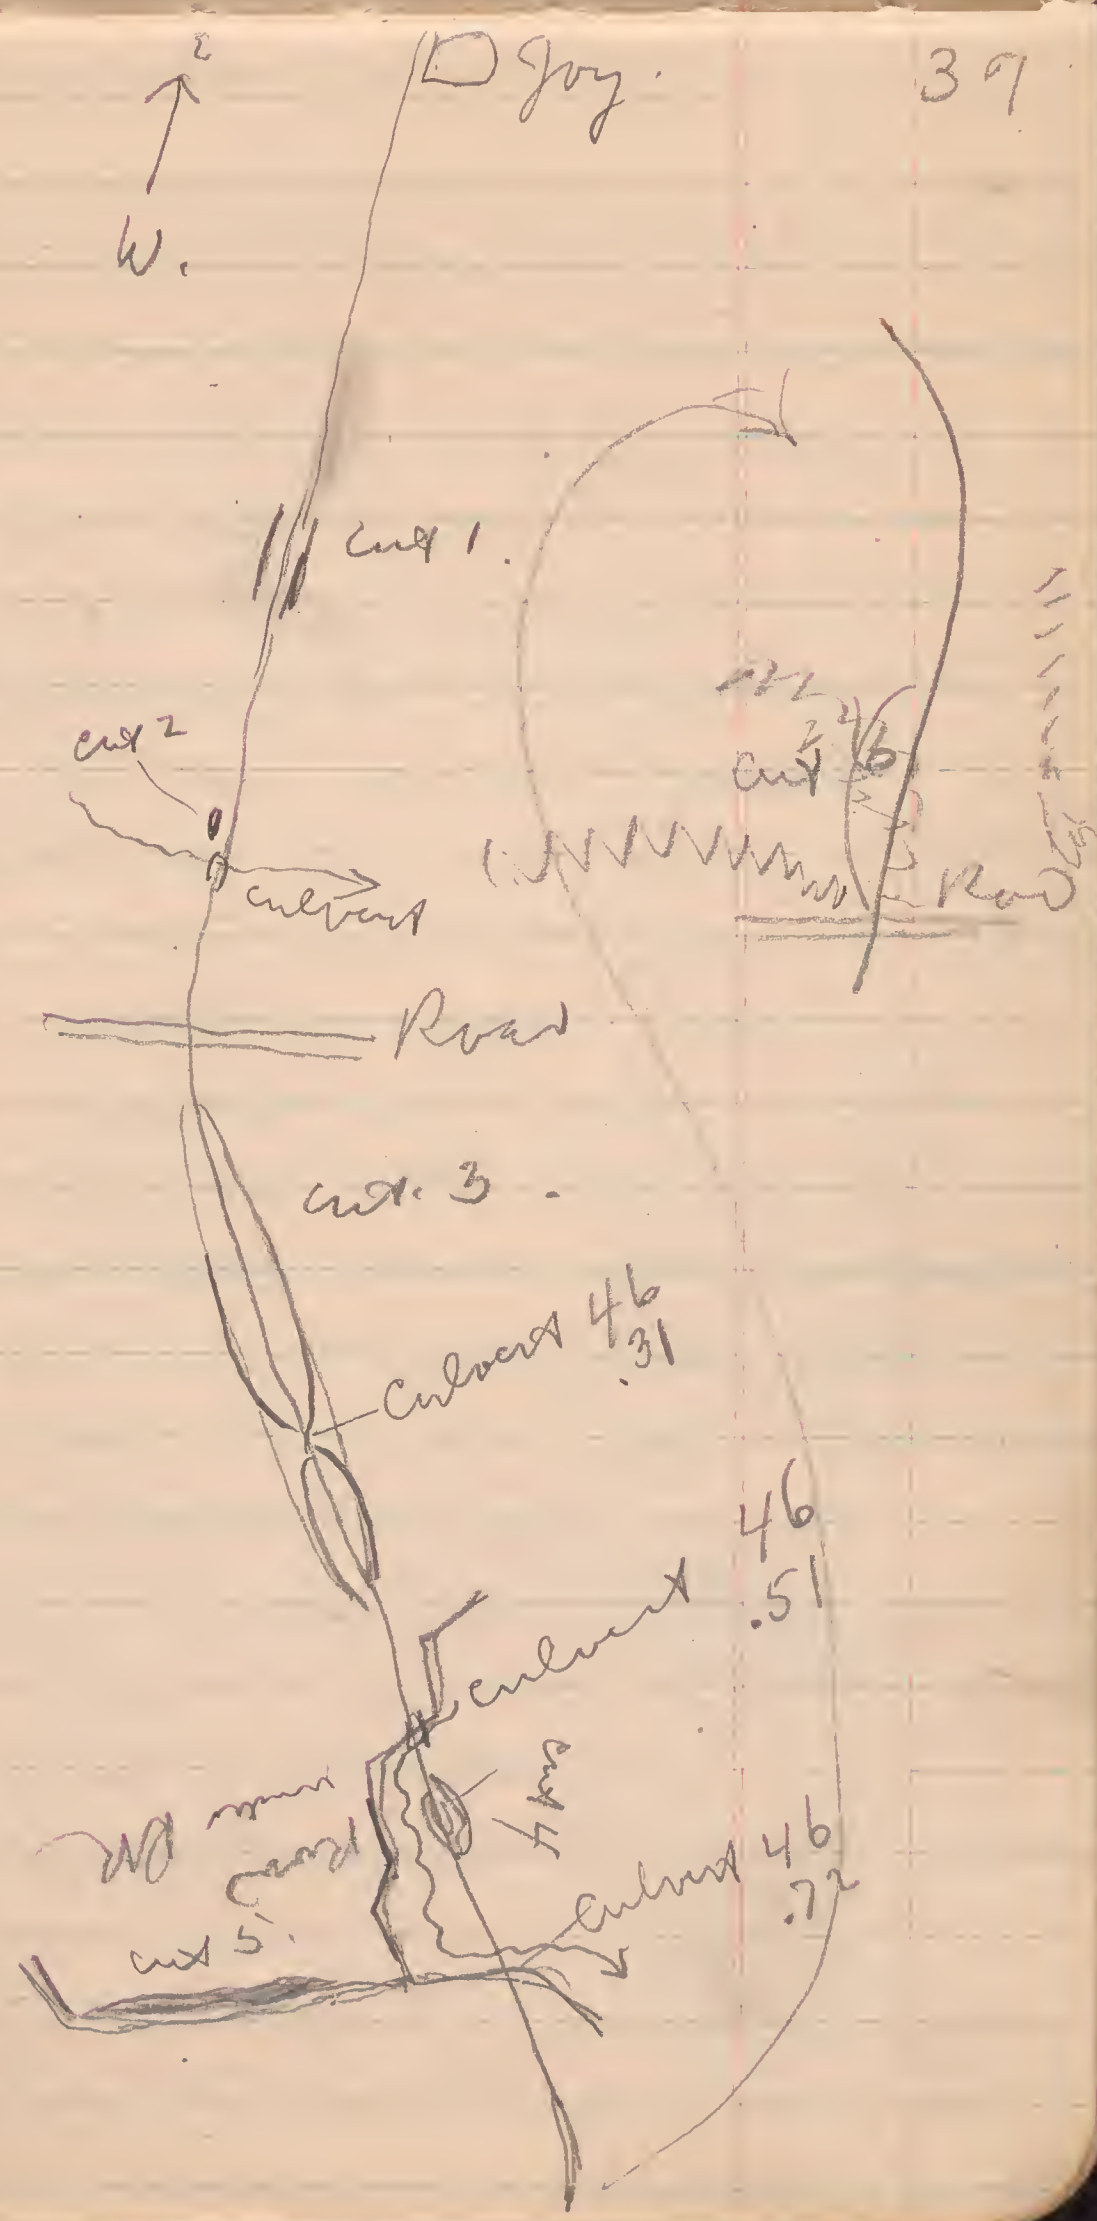 E
Joy.
37
W.
cut 1.
cut 2
culvert
cut 6
Road
Road
cut. 3.
Culvert 46
.31
culvert 46
.51
cut 4
Road
under RR
Culvert 46
.72
cut 5.